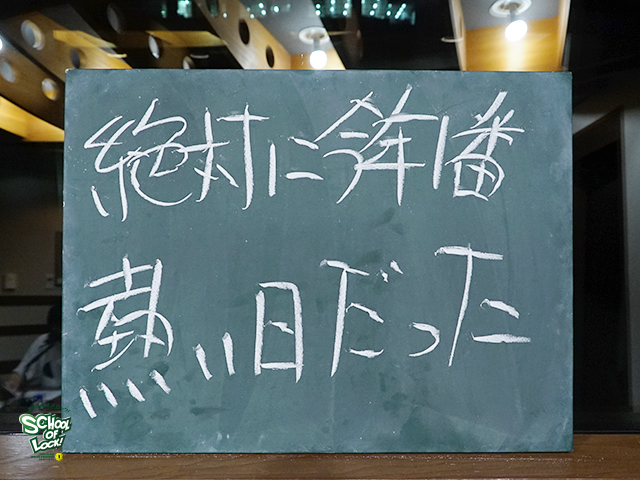 絶対に今年1番
熱い日だった
SCHOOL
OF
LOCK!